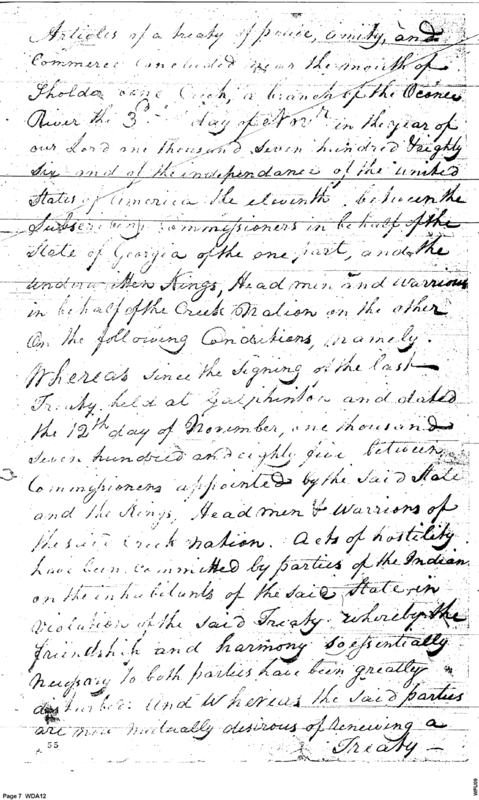 Articles of a treaty of peace, amity, and
Commerce concluded near the mouth of
Sholder bone Creek, a branch of the Oconee
River the 3d day of Novr in the year of
our Lord one thousand seven hundred & eighty
six and of the independance of the united
States of America the eleventh between the
Subscribing Commissioners in behalf of the
State of Georgia of the one part, and the
underwritten Kings, Head men and warriors
in behalf of the Creek Nation on the other
On the following Conditions, namely.
Whereas since the signing of the last
Treaty held at Galphinton and dated
the 12th day of November, one thousand
seven hundred and eighty five between
Commissioners appointed by the said State
and the Kings, Head men & Warriors of
the said Creek nation. Acts of hostility
have been committed by parties of the Indian
on the inhabitants of the said State in
violation of the said Treaty whereby the
friendship and harmony so essentially
necessary to both parties have been greatly
disturbed: And Whereas the said parties
are now mutually desirous of renewing a
55
Treaty —
Page 7 WDA12
WPU09